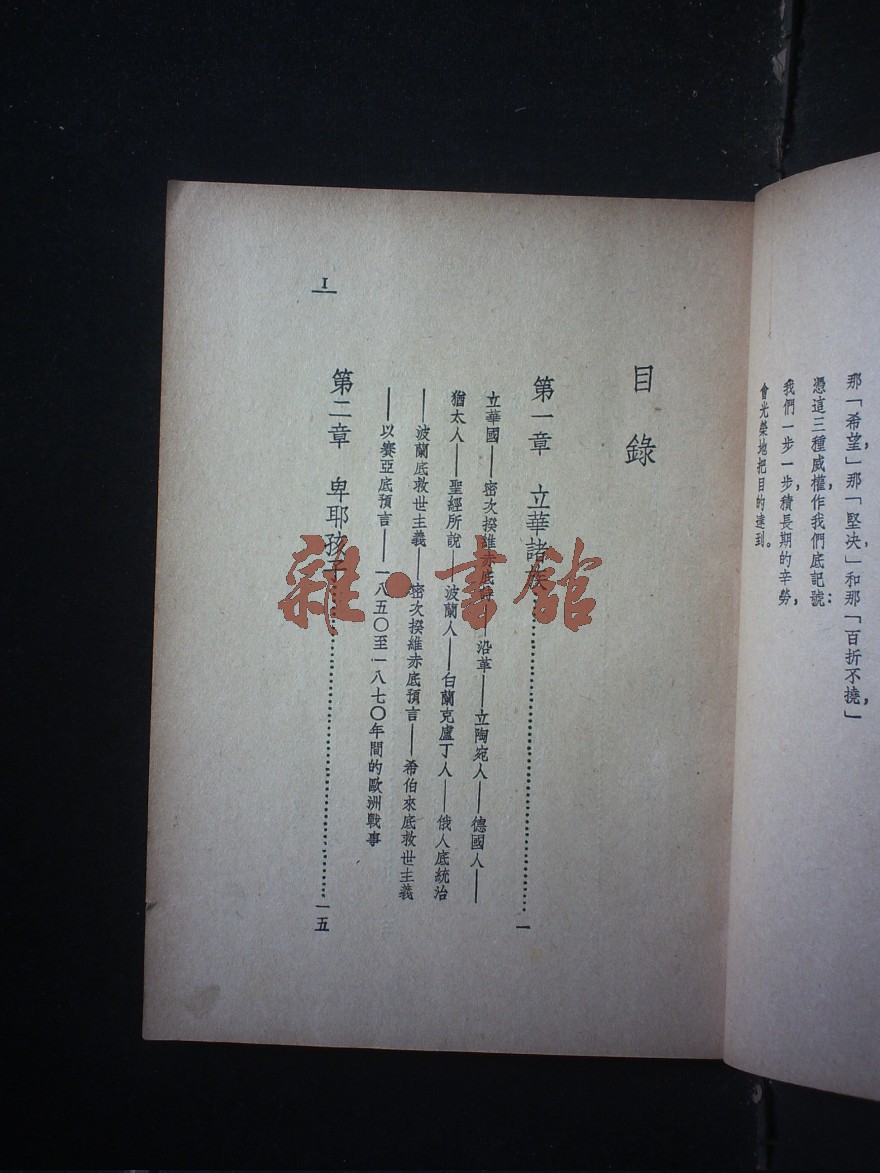 那「希望」，那「堅決」和那「百折不撓」，
憑這三種威權作我們底記號：
我們一步一步，積長期的辛勞，
會光榮地把目的達到。
目錄
第一章 立華諸族……一
立華國——密次揆維赤底詩——沿革——立陶宛人——德國人——
猶太人——聖經所說——波蘭人——白蘭克盧丁人——俄人底統治
——波蘭底救世主義——密次揆維赤底預言——希伯來底救世主義
——以賽亞底預言——一八五〇至一八七〇年間的歐洲戰事
第二章 卑耶孩子……一五
1
雜·書舘